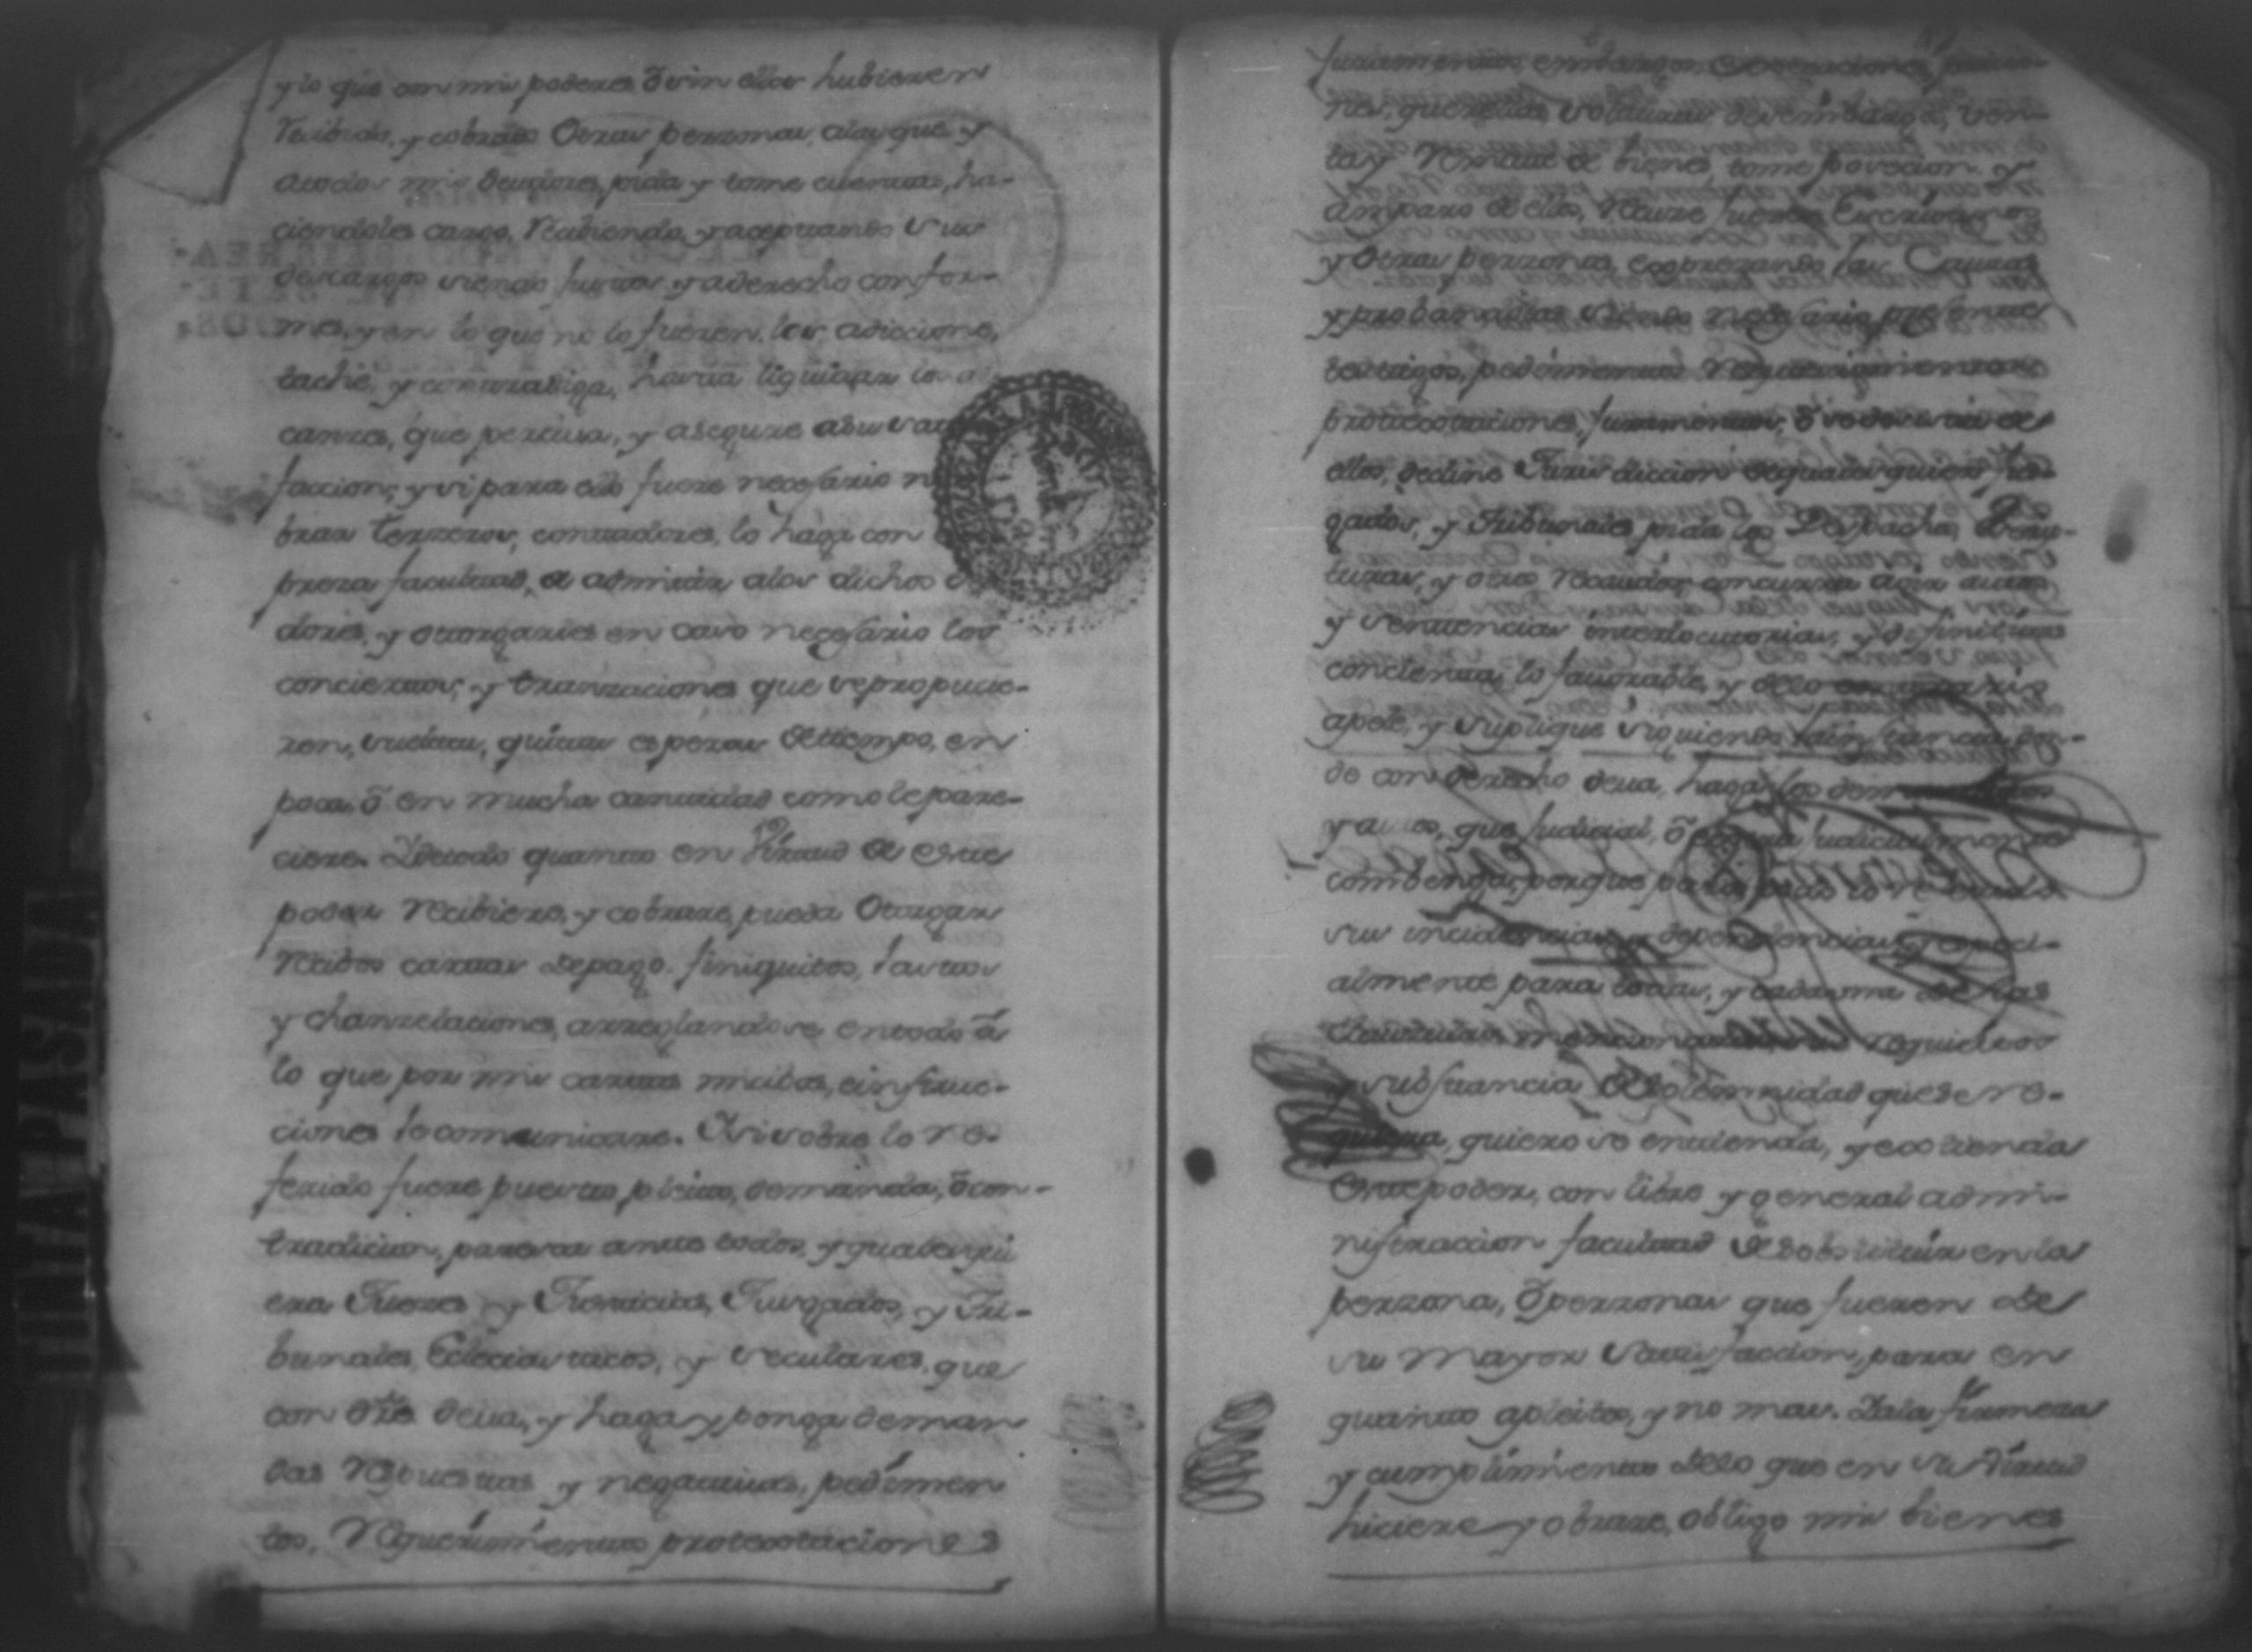 y lo que con mis poderes, ô sin ellos hubieren
recibido, y cobrado Otras perzonas, alas que y
atodos mis deudores, pida y tome cuentas, ha-
ciendoles cargo, recibiendo, y aceptando sus
descargos siendo justos y aderecho confor-
mes, y en lo que no lo fueren, los adiccione,
tache, y contradiga, hasta liquidar los al
canzes, que perciva, y asegure asu satis
faccion, y si para ello fuere necesario n
brar terzeros, contadores, lo haga con
preza facultad, de admitir alos dichos
dores, y otorgarles en caso necesario los
conciertos, y tranzaciones que se propucie-
ren, sueltas, quitas esperas de tiempo, en
poca ô en mucha cantidad como le pare-
ciere. Y de todo quanto en Virtud de este
poder recibiere, y cobrare, pueda Otorgar
recibos cartas de pago, finiquitos, lastos
y chanzelaciones, arreglandose en todo â
lo que por mis cartas micibas, e instruc-
ciones le comunicare. Y si sobre lo re-
ferido fuere puesto, pleito, demanda, ô con-
tradicion, paresca ante todos, y qualesqui
era Juezes y Justicias, Juzgados, y Tri-
bunales, Eclesiasticos, y seculares, que
con dro. deva, y haga y ponga deman
das respuestas y negativas, pedimen
tos, requerimientos protestaciones
juramentos, embargos, execuciones, pricio-
nes, querellas, solturas desembargos, ven-
tas y remate de bienes, tome posecion y
amparo de ellos, recuze Juezes Escrivanos
y Otras perzonas, expresando las Causas
y probandolas siendo necesario, presente
testigos, pedimentos requerimientos
protestaciones, juramentos, ô se desista de
ellos, decline Jurisdiccion de qualesquiera Juz-
gados, y Tribunales, pida los Despachos, Escrip-
turas, y otros recaudos concurra a oir autos
y sentencias interlocutorias, y difinitivas
concienta lo favorable, y dello contrario
apele, y suplique siguiendo las instancias don-
de con derecho deva, haga los demas
y autos, que judicial, ô extra judicialmente
combenga, porque para todo lo referido
sus incidencias y dependencias, y especi-
almente para todas, y cada una de las
Clausulas mencionadas, requicitos
y substancia de solemnidad que se re-
quiera, quiero se entienda, y extienda
Este poder, con libre y general admi-
nistracion facultad de sobstituir en la
perzona, ô perzonas que fueren de
su mayor satisfaccion, para en
quanto apleitos, y no mas. Y a la firmeza
y cumplimiento de lo que en su Virtud
hiciere y obrare, obligo mis bienes